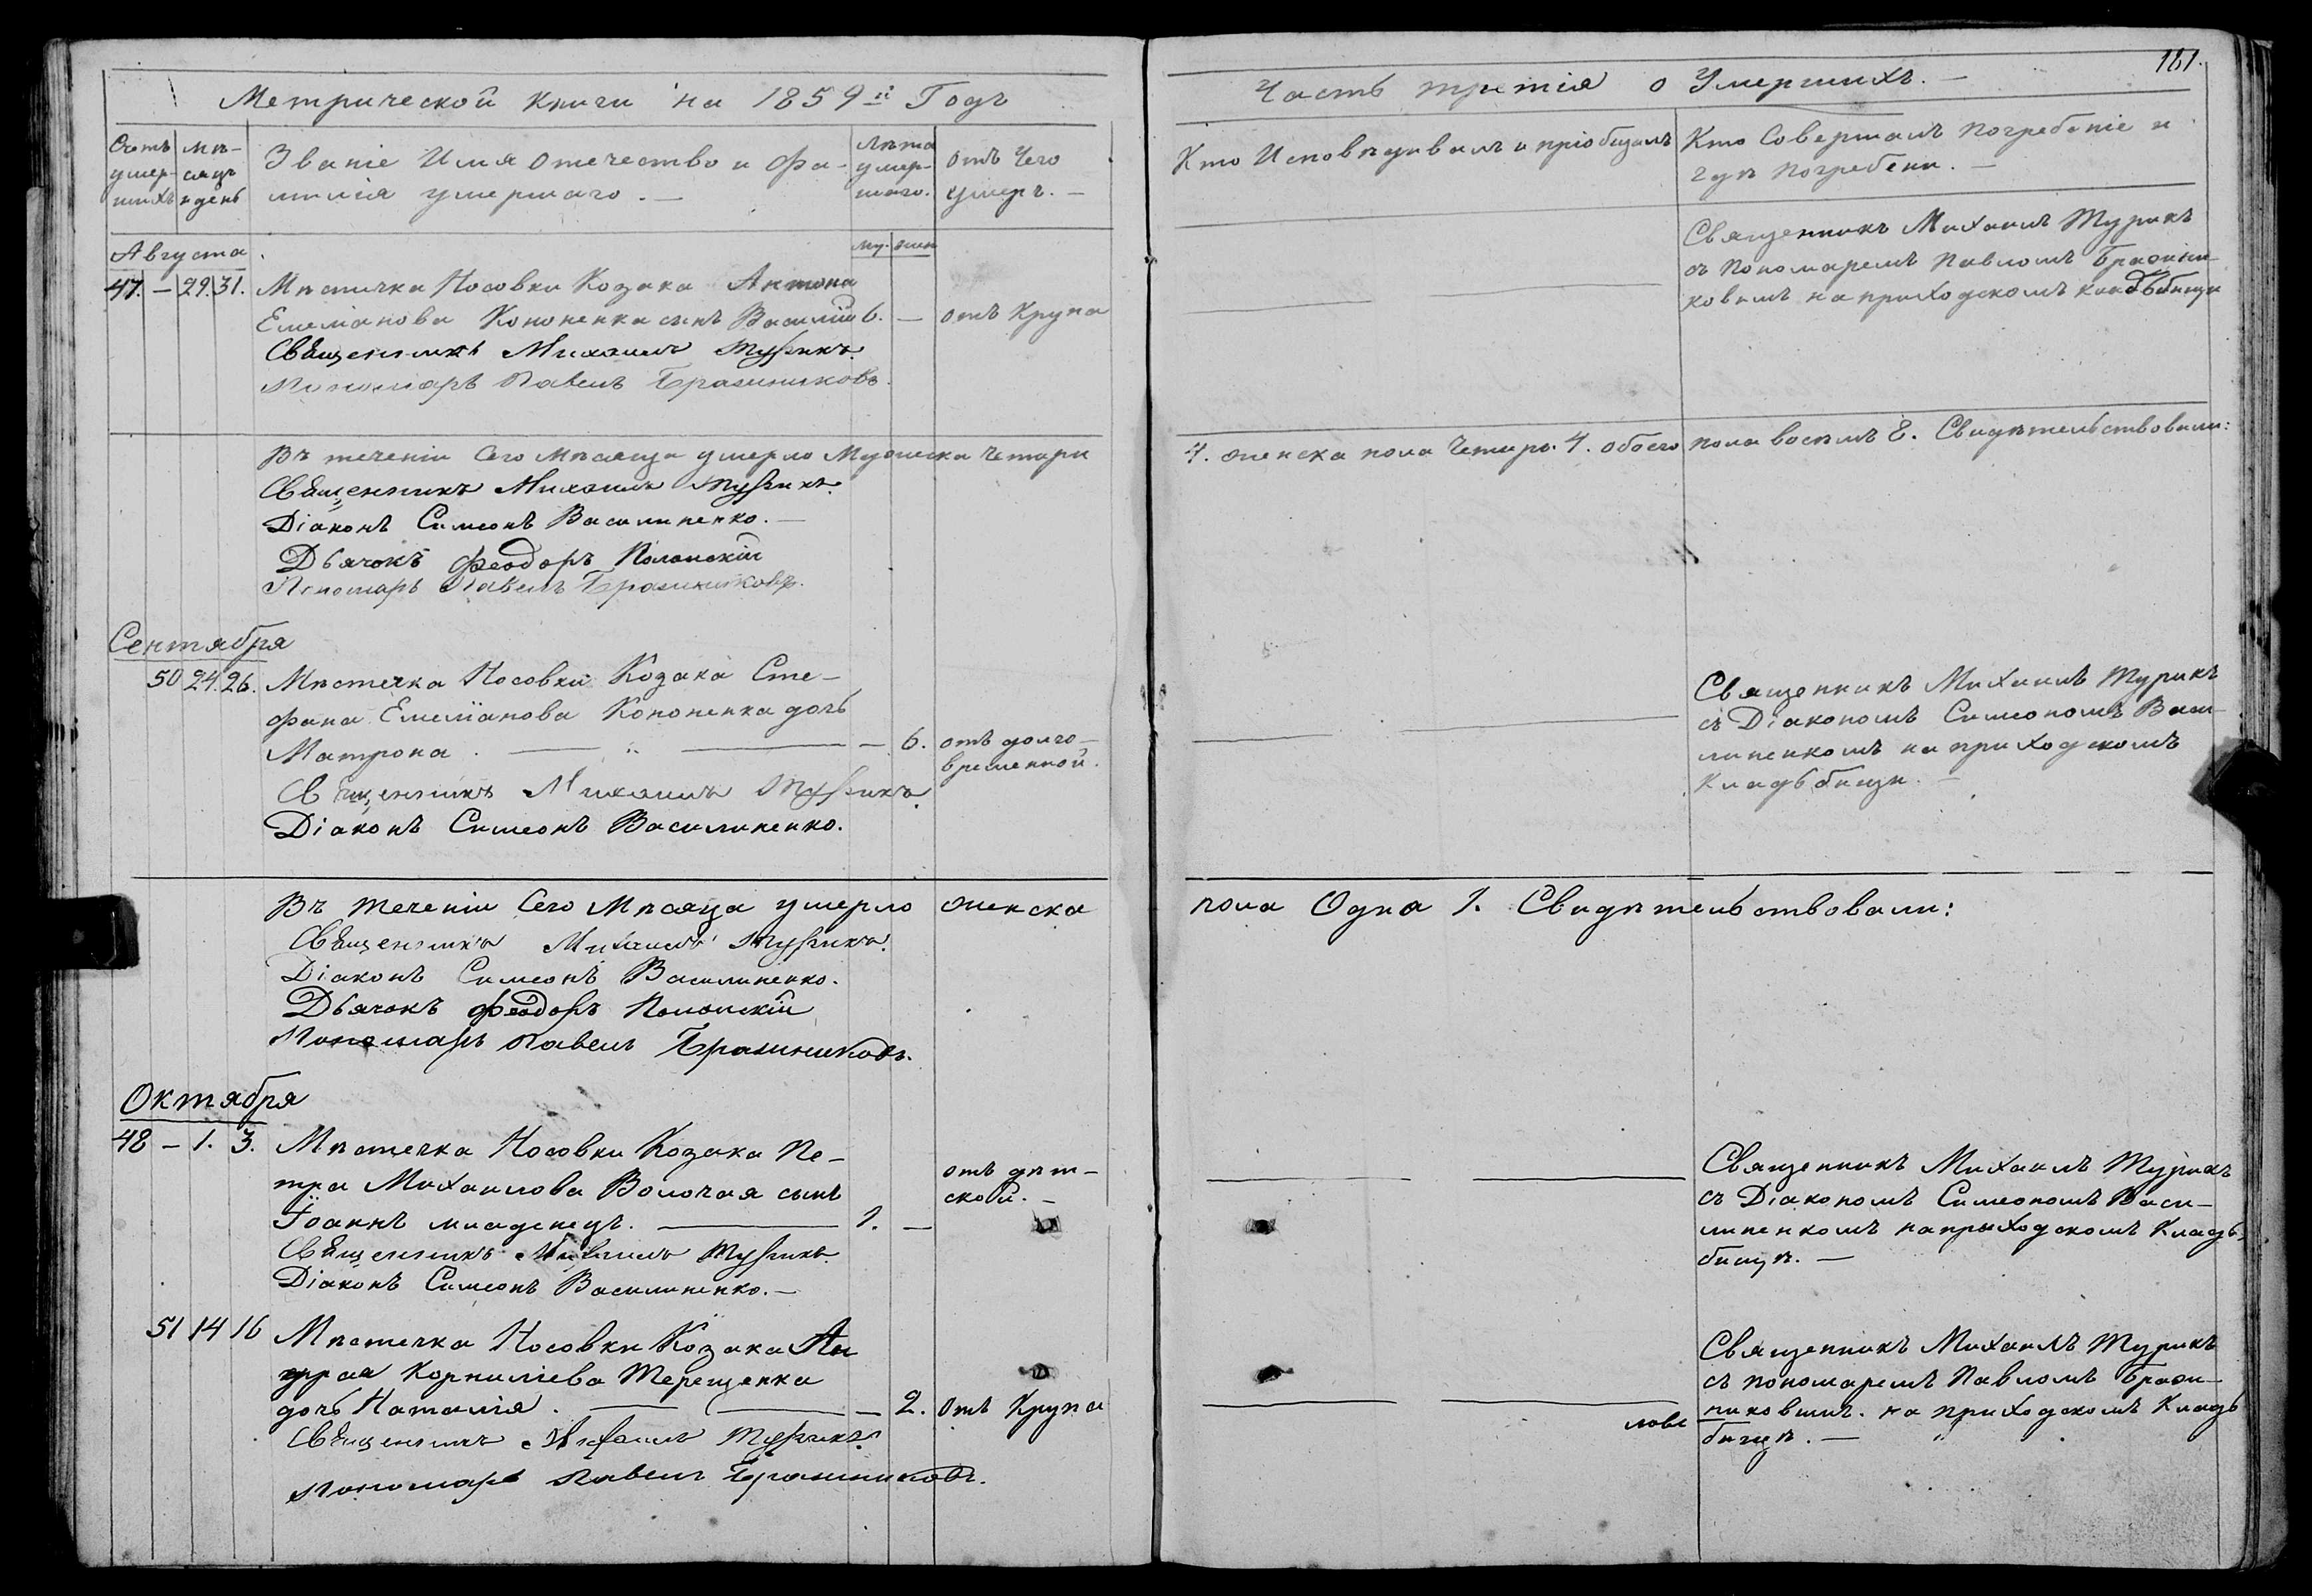 Метрической книги на 1859й Годъ
Счетъ умер-шихъ
мѣ-сяцъ и день
Званіе Имя отечество и фа-
милія умершаго. —
Лѣта умер-шаго.
отъ Чего умеръ. —
му. жен
Августа
47. — 29. 31. Мѣстечка Носовки Козака Антона
Емеліанова Кононенка сынъ Василій 6. — отъ Крупа
Священникъ Михаилъ Турикъ.
Пономарь Павелъ Бражниковъ.
Въ теченіи Сего Мѣсяца умерло Мужеска четыри
Священникъ Михаилъ Турикъ.
Діаконъ Симеонъ Василиненко. —
Дьячокъ Феодоръ Полонскій
Пономарь Павелъ Бражниковъ.
Сентября
50 24. 26. Мѣстечка Носовки Козака Сте-
фана Емеліанова Кононенка дочь
Матрона. — — — 6. отъ долго-
временной.
Священникъ Михаилъ Турикъ.
Діаконъ Симеонъ Василиненко.
Въ теченіи Сего Мѣсяца умерло женска
Священникъ Михаилъ Турикъ.
Діаконъ Симеонъ Василиненко.
Дьячокъ Феодоръ Полонскій
Пономарь Павелъ Бражниковъ.
Октября
48 — 1. 3. Мѣстечка Носовки Козака Пе-
тра Михаилова Волочая сынъ
Іоаннъ младенецъ. — 1. — отъ дѣт-
ской. —
Священникъ Михаилъ Турикъ.
Діаконъ Симеонъ Василиненко. —
51 14 16 Мѣстечка Носовки Козака Ан
дрея Корниліева Терещенка
дочь Наталія. — — — 2. отъ Крупа
Священникъ Михаилъ Турикъ.
Пономарь Павелъ Бражниковъ.
181.
Часть третія о Умершихъ. —
Кто Исповѣдывалъ и пріобщалъ
Кто Совершалъ погребеніе и
гдѣ погребени. —
Священникъ Михаилъ Турикъ
съ Пономаремъ Павломъ Бражни-
ковымъ на приходскомъ кладбищи
4. женска пола Четыре. 4. обоего пола восѣмъ 8. Свидѣтельствовали:
Священникъ Михаилъ Турикъ
съ Діакономъ Симеономъ Васи-
линенкомъ на приходскомъ
Кладьбищи. —
пола Одна 1. Свидѣтельствовали:
Священникъ Михаилъ Турикъ
съ Діакономъ Симеономъ Васи-
линенкомъ на прыходскомъ Кладь-
бищѣ. —
Священникъ Михаилъ Турикъ
съ пономаремъ Павломъ Бражн-
никовымъ. на приходскомъ Кладь
бищѣ. —